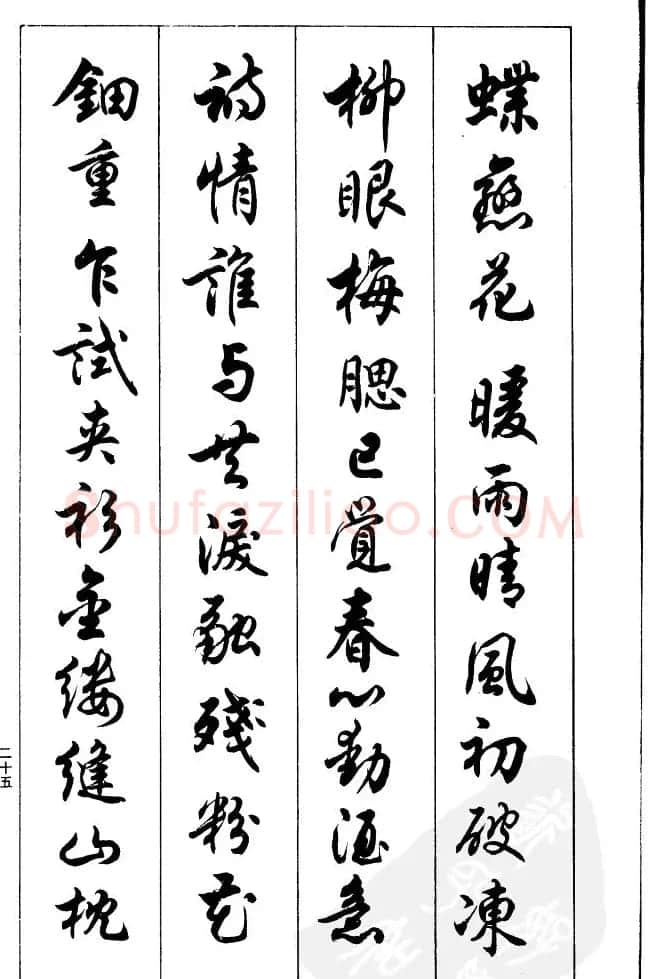 蝶戀花 暖雨晴風初破凍
柳眼梅腮已覺春心動酒意
詩情誰与共淚融殘粉花
鈿重乍試夾衫金縷縫山枕
二十五
Shufaziliao.COM